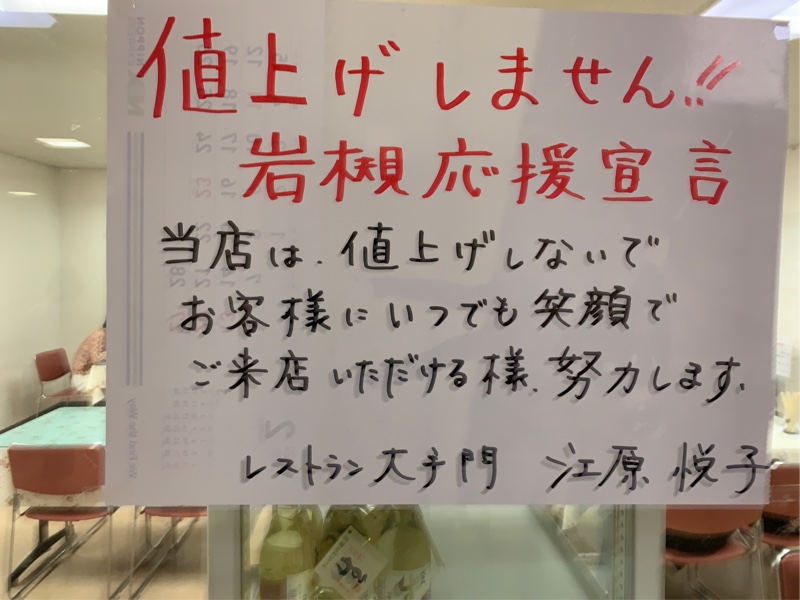 値上げしません!!
岩槻応援宣言
当店は、値上げしないで
お客様にいつでも笑顔で
ご来店いただける様、努力します。
レストラン大手門 江原悦子